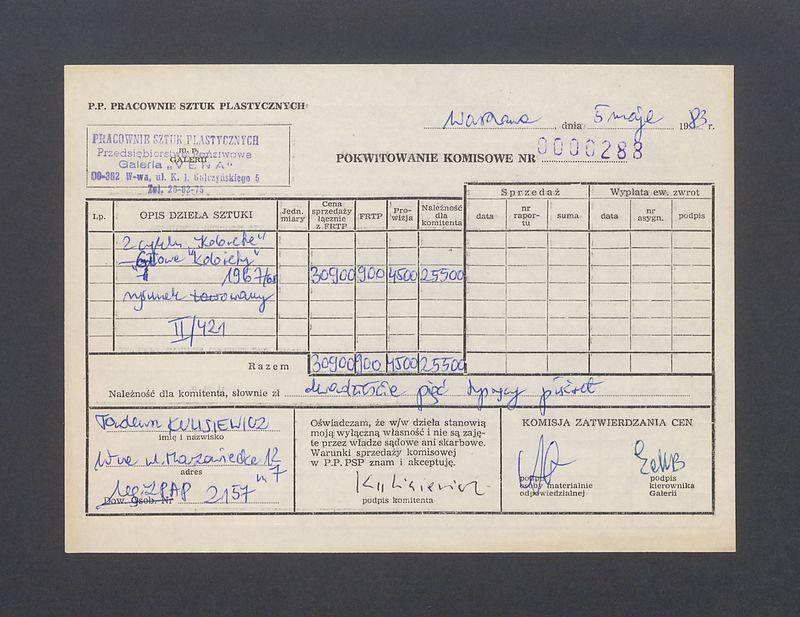 P.P. PRACOWNIE SZTUK PLASTYCZNYCH
Warszawa, dnia 5 maja 1983 r.
PRACOWNIE SZTUK PLASTYCZNYCH
Przedsiębiorstwo Państwowe
m. p.
GALERII
Galeria „VENA"
00-362 W-wa, ul. K. I. Gałczyńskiego 5
Tel. 26-63-75
POKWITOWANIE KOMISOWE NR 0000288
Sprzedaż Wypłata ew. zwrot
Lp. OPIS DZIEŁA SZTUKI Jedn. miary Cena sprzedaży łącznie z FRTP FRTP Prowizja Należność dla komitenta data nr raportu suma data nr asygn. podpis
z cyklu „Kobiety"
"Kobiety"
1967/68 30900 900 4500 25500
rysunek
II/421
Razem 30900 900 4500 25500
Należność dla komitenta, słownie zł dwadzieścia pięć tysięcy pięćset
Tadeusz KULISIEWICZ
imię i nazwisko
W-wa ul. Mazowiecka 12
m 7
adres
leg. ZPAP 2157
Dow. Osob. Nr
Oświadczam, że w/w dzieła stanowią
moją wyłączną własność i nie są zaję-
te przez władze sądowe ani skarbowe.
Warunki sprzedaży komisowej
w P.P. PSP znam i akceptuję.
Kulisiewicz
podpis komitenta
KOMISJA ZATWIERDZANIA CEN
podpis
osoby materialnie
odpowiedzialnej
podpis
kierownika
Galerii